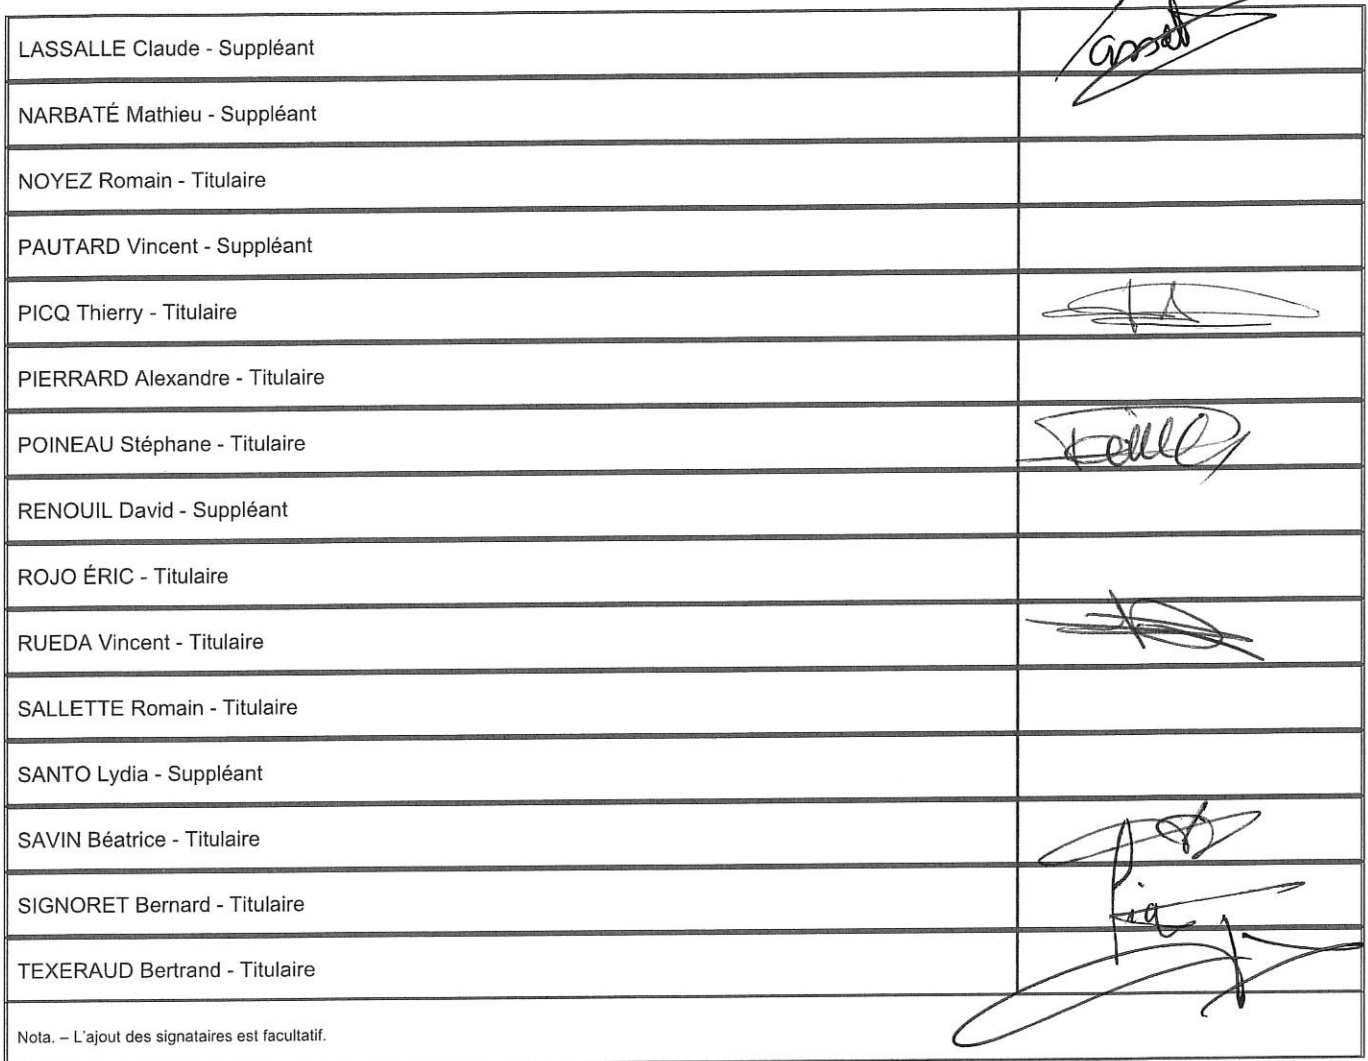 LASSALLE Claude - Suppléant
NARBATÉ Mathieu - Suppléant
NOYEZ Romain - Titulaire
PAUTARD Vincent - Suppléant
PICQ Thierry - Titulaire
PIERRARD Alexandre - Titulaire
POINEAU Stéphane - Titulaire
RENOUIL David - Suppléant
ROJO ÉRIC - Titulaire
RUEDA Vincent - Titulaire
SALLETTE Romain - Titulaire
SANTO Lydia - Suppléant
SAVIN Béatrice - Titulaire
SIGNORET Bernard - Titulaire
TEXERAUD Bertrand - Titulaire
Nota. – L'ajout des signataires est facultatif.